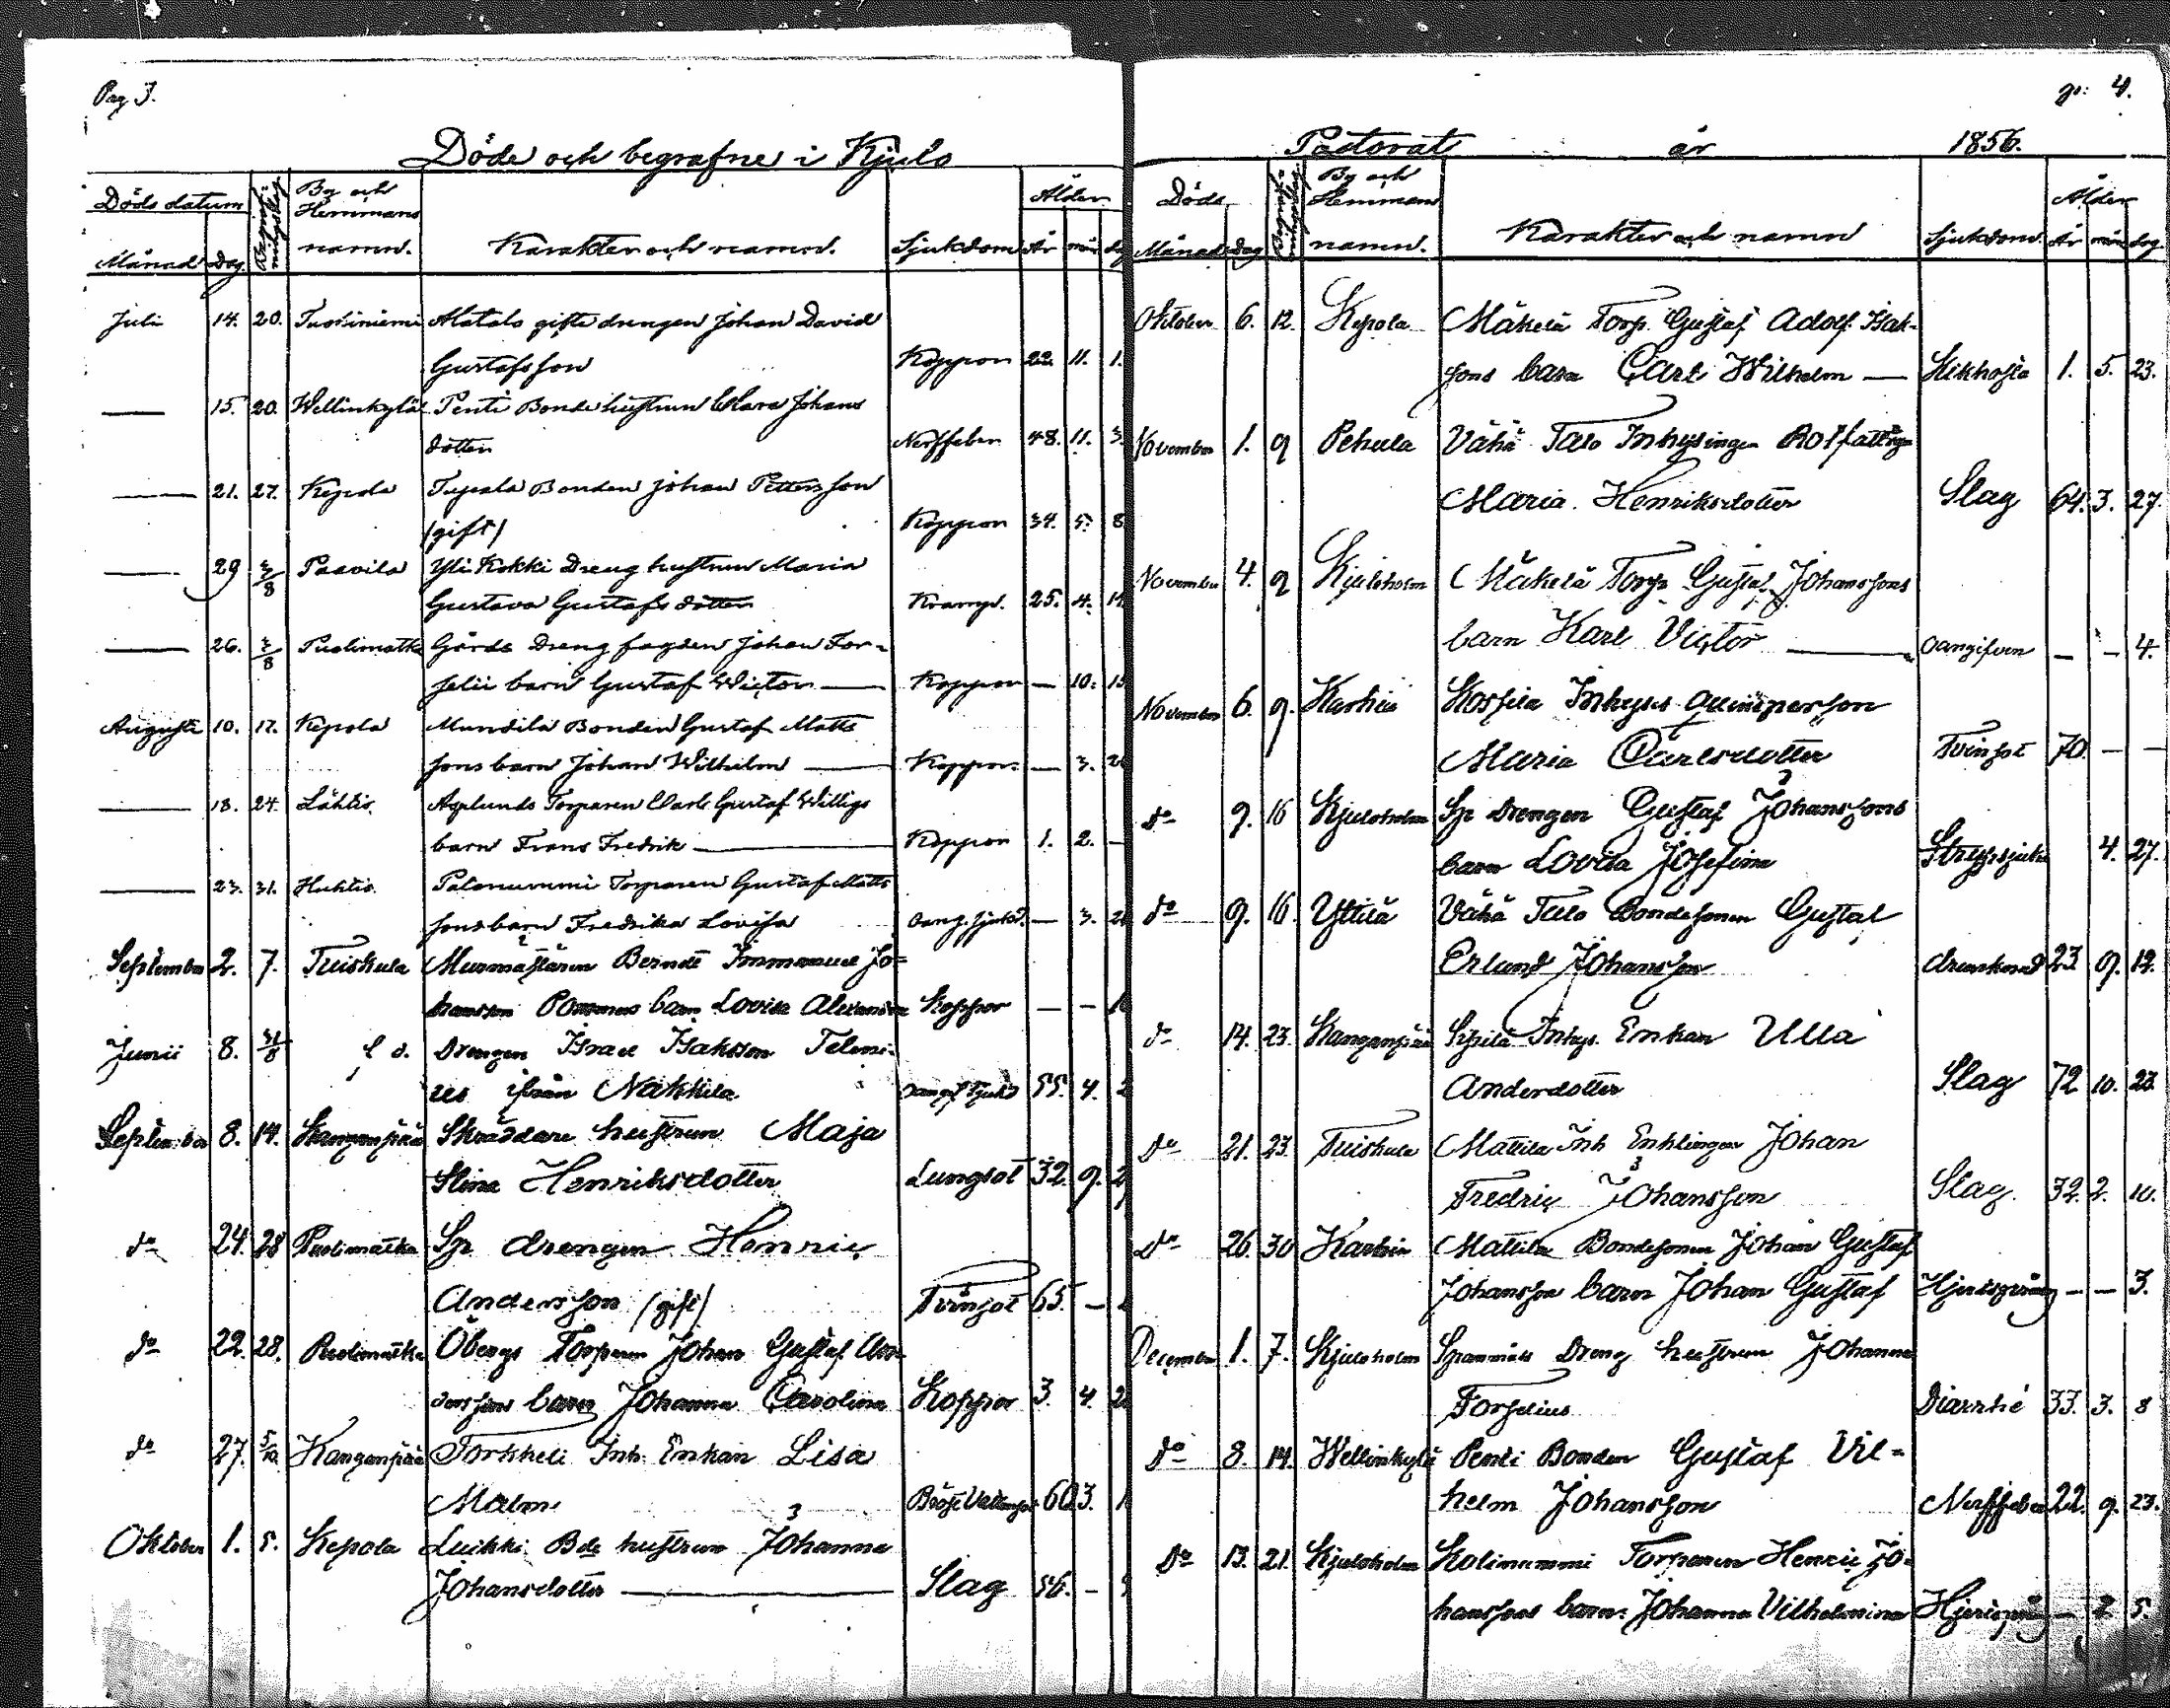 Pag 3.
Döde och begrafne i Kjulo
Döds datum
Månad Dag
Begrafningsdag
By och Hemmans namn.
Karakter och namn.
Sjukdom
Ålder
År mån dag
Juli 14. 20. Tuoiniemi Alatalo gifte drengen Johan David
Gustafsson Koppor 22. 11. 1.
— 15. 20. Wellinkylä Penti Bonde hustrun Clara Johans
dotter Nerffeber 48. 11. 3.
— 21. 27. Kepola Bonden Johan Pettersson
(gift) Koppor 34. 5. 8
— 29 3/8 Paavila Yli Kokki Dreng hustrun Maria
Gustava Gustafs dotter Kramp. 25. 4.
— 26. 3/8 Puolimatka Gårds Dreng fogden Johan For-
selii barn Gustaf Wictor — Koppor — 10.
Augusti 10. 17. Kepola Mundila Bonden Gustaf Matts
sons barn Johan Wilhelm — Koppor — 3.
— 18. 24. Lähtis Asplunds Torparen Carl Gustaf Willigs
barn Frans Fredrik — Koppor 1. 2. —
— 23. 31. Huhtis Torparen Gustaf Matts
sons barn Fredrika Lovisa Oang. sjukd. — 3.
September 2. 7. Tuiskula Murmästaren Berndt Immanuel Jo-
hansson barn Lovisa Alexandra Koppor — —
Junii 8. 31/8 Drengen Israel Isaksson
ifrån Nakkila 55. 4. 2
September 8. 14. Kanganpää Skräddare hustrun Maja
Stina Henriksdotter Lungsot 32. 9. 2
do 24. 28 Puolimatka Sp drengen Henric
Andersson (gift) Tvinsot 65. —
do 22. 28. Puolimatka Öbergs Torparen Johan Gustaf An-
derssons barn Johanna Carolina Koppor 3. 4.
do 27. 5/10 Kanganpää Torkkeli Inh. Enkan Lisa
Malm Bröst Vattusot 60 3.
Oktober 1. 5. Kepola Luikki Bde hustrun Johanna
Johansdotter — Slag 56. —
4.
Pastorat år 1856.
Döds
Månad Dag
Begrafningsdag
By och Hemmans namn.
Karakter och namn
Sjukdom
Ålder
År mån dag.
Oktober 6. 12. Kepola Mäkelä Torp. Gustaf Adolf Isak-
sons barn Carl Wilhelm — Kikhosta 1. 5. 23.
November 1. 9 Pehula Vähä Talo Inhysingen Rotfattiga
Maria Henriksdotter Slag 64. 3. 27.
November 4. 9 Kjuloholm Mäkelä Torp. Gustaf Johanssons
barn Karl Victor — Oangifven — — 4.
November 6. 9. Karhia Inhyses Qvinsperson
Maria Carlsdotter Tvinsot 70. — —
do 9. 16 Kjuloholm Sp Drengen Gustaf Johanssons
barn Lovisa Josefina Strypsjuka 4. 27.
do 9. 16. Yttilä Vähä Talo Bondesonen Gustaf
Erland Johansson drunknad 23 9. 12.
do 14. 23. Kanganpää Sipilä Inhys. Enkan Ulla
Andersdotter Slag 72 10. 23.
do 21. 23. Tuiskula Mattila Inh Enklingen Johan
Fredric Johansson Slag. 32. 2. 10.
do 26. 30 Karhia Mattila Bondesonen Johan Gustaf
Johansson barn Johan Gustaf Hjertsprång — — 3.
December 1. 7. Kjuloholm Spannmåls Dreng hustrun Johanna
Forselius Diarrhé 33. 3. 8
do 8. 14. Wellinkylä Penti Bonden Gustaf Vil-
helm Johansson Nerffeber 22. 9. 23.
do 13. 21. Kjuloholm Kolinummi Torparen Henric Jo-
hanssons barn Johanna Vilhelmina — 2. 5.